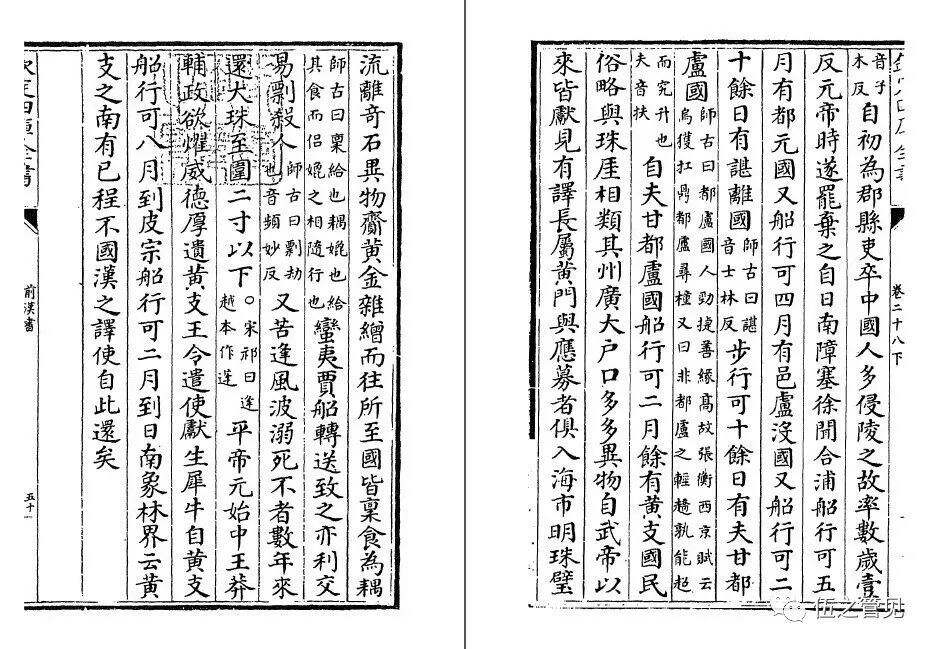 欽定四庫全書
卷二十八下
音子本反自初為郡縣吏卒中國人多侵陵之故率數歲壹
反元帝時遂罷棄之自日南障塞徐聞合浦船行可五
月有都元國又船行可四月有邑盧没國又船行可二
十餘日有諶離國師古曰諶音士林反步行可十餘日有夫甘都
盧國師古曰都盧國人勁捷善緣髙故張衡西京賦云烏獲扛鼎都盧尋橦又曰非都盧之輕趫孰能超
而究升也夫音扶自夫甘都盧國船行可二月餘有黄支國民
俗略與珠厓相類其州廣大户口多多異物自武帝以
來皆獻見有譯長屬黄門與應募者俱入海市明珠璧
流離奇石異物齎黄金雜繒而往所至國皆稟食為耦
師古曰稟給也耦媲也給其食而侣媲之相隨行也蠻夷賈船轉送致之亦利交
易剽殺人師古曰剽劫也音頻妙反又苦逢風波溺死不者數年來
還大珠至圍二寸以下○宋祁曰逢越本作蓬平帝元始中王莽
輔政欲燿威德厚遺黄支王令遣使獻生犀牛自黄支
船行可八月到皮宗船行可二月到日南象林界云黄
支之南有已程不國漢之譯使自此還矣
欽定四庫全書
前漢書
五十一
伍之管见